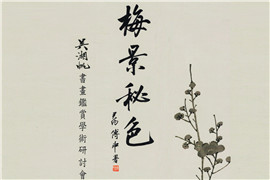 梅景秘色
傅申書
吳湖帆書畫鑑賞學術研討會